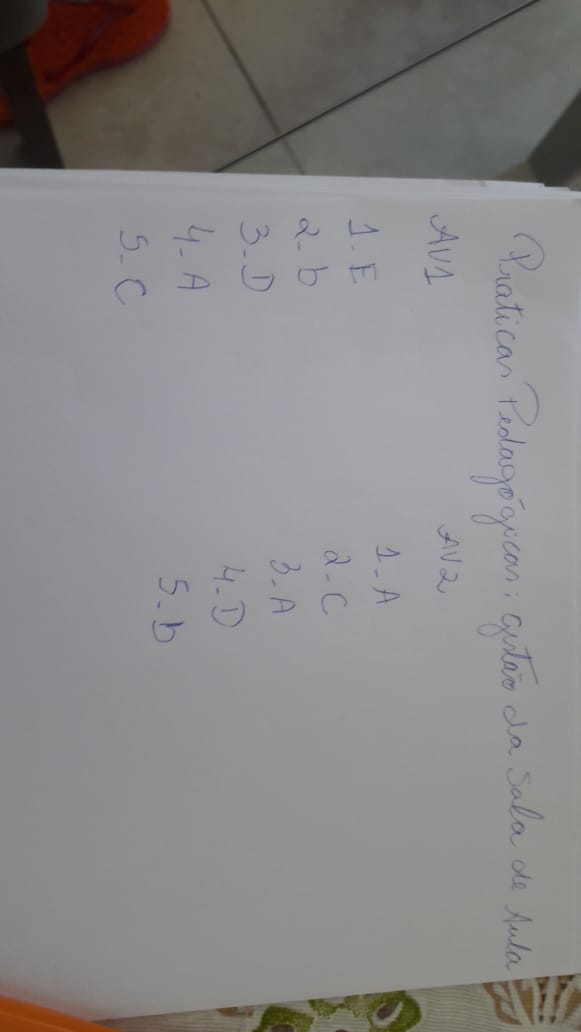 Praticas Pedagógicas: gestão da Sala de Aula
AV1
1-E
2-b
3-D
4-A
5-C
AV2
1-A
2-C
3-A
4-D
5-b